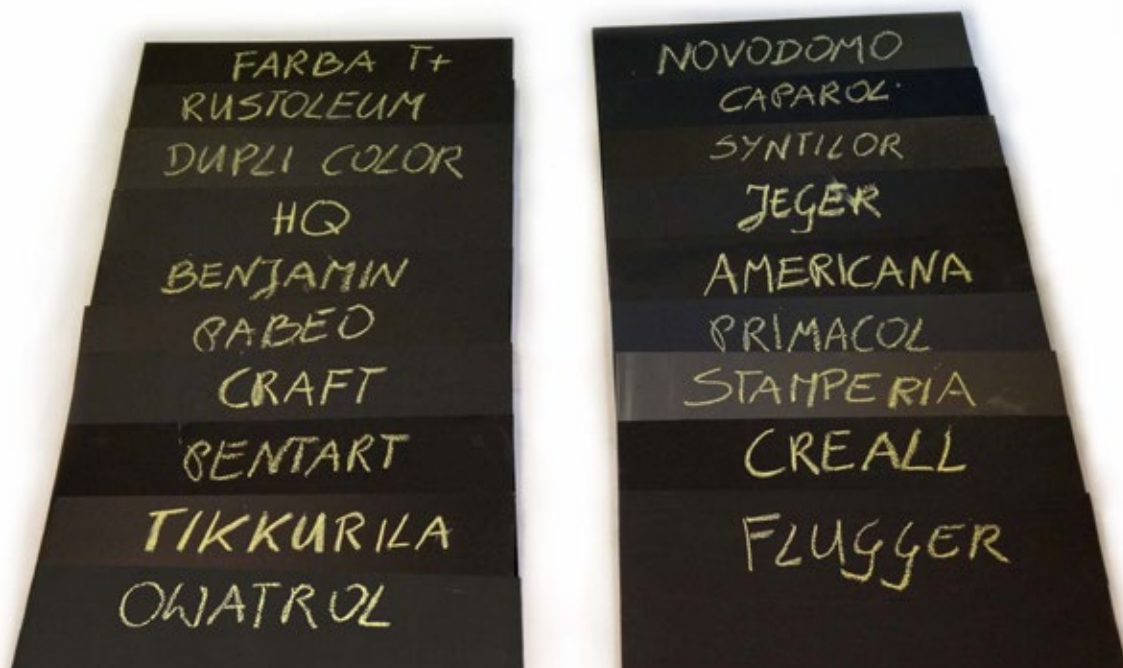 FARBA T+
RUSTOLEUM
DUPLI COLOR
HQ
BENJAMIN
PABEO
CRAFT
PENTART
TIKKURILA
OWATROL
NOVODOMO
CAPAROL
SYNTILOR
JEGER
AMERICANA
PRIMACOL
STAMPERIA
CREALL
FLUGGER